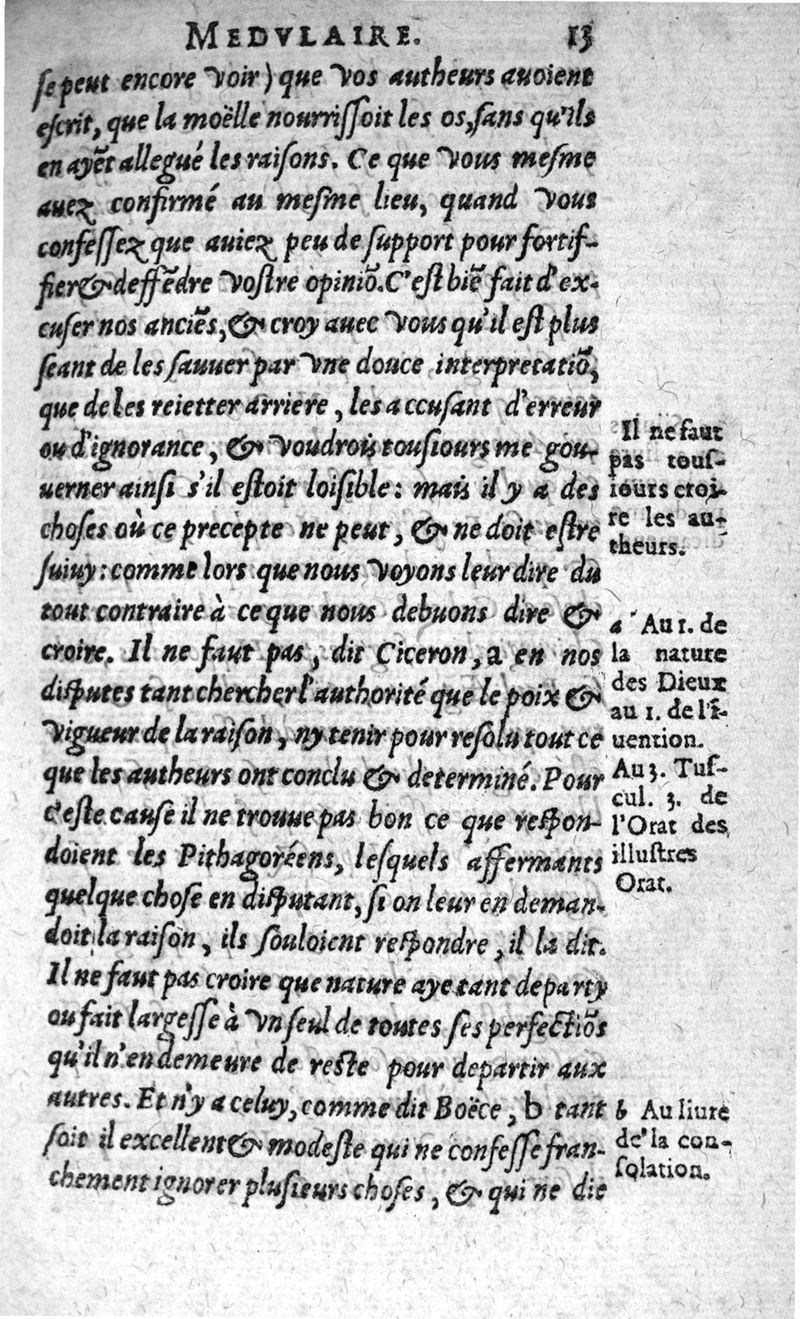 MEDVLAIRE. 13
ſe peut encore voir) que vos autheurs auoient
eſcrit, que la moëlle nourriſſoit les os, ſans qu'ils
en ayēt allegué les raiſons. Ce que vous meſme
auez confirmé au meſme lieu, quand vous
confeſſez que auiez peu de ſupport pour fortif-
fier & deffēdre voſtre opiniō. C'eſt biē fait d'ex-
cuſer nos anciēs, & croy auec vous qu'il eſt plus
ſeant de les ſauuer par vne douce interpretatiō,
que de les reietter arriere, les accuſant d'erreur
ou d'ignorance, & voudrois touſiours me gou-
uerner ainſi s'il eſtoit loiſible: mais il y a des
choſes où ce precepte ne peut, & ne doit eſtre
ſuiuy: comme lors que nous voyons leur dire du
tout contraire à ce que nous debuons dire &
croire. Il ne faut pas, dit Ciceron, a en nos
diſputes tant chercher l'authorité que le poix &
vigueur de la raiſon, ny tenir pour reſolu tout ce
que les autheurs ont conclu & determiné. Pour
c'eſte cauſe il ne trouue pas bon ce que reſpon-
doient les Pithagoréens, leſquels affermants
quelque choſe en diſputant, ſi on leur en deman-
doit la raiſon, ils ſouloient reſpondre, il la dit.
Il ne faut pas croire que nature aye tant departy
ou fait largeſſe à vn ſeul de toutes ſes perfectiōs
qu'il n'en demeure de reſte pour departir aux
autres. Et n'y a celuy, comme dit Boëce, b tant
ſoit il excellent & modeſte qui ne confeſſe fran-
chement ignorer pluſieurs choſes, & qui ne die
Il ne faut
pas touſ-
iours croi-
re les au-
theurs.
a Au 1. de
la nature
des Dieux
au 1. de l'ī-
uention.
Au 3. Tuſ-
cul. 3. de
l'Orat des
illuſtres
Orat.
b Au liure
de la con-
ſolation.